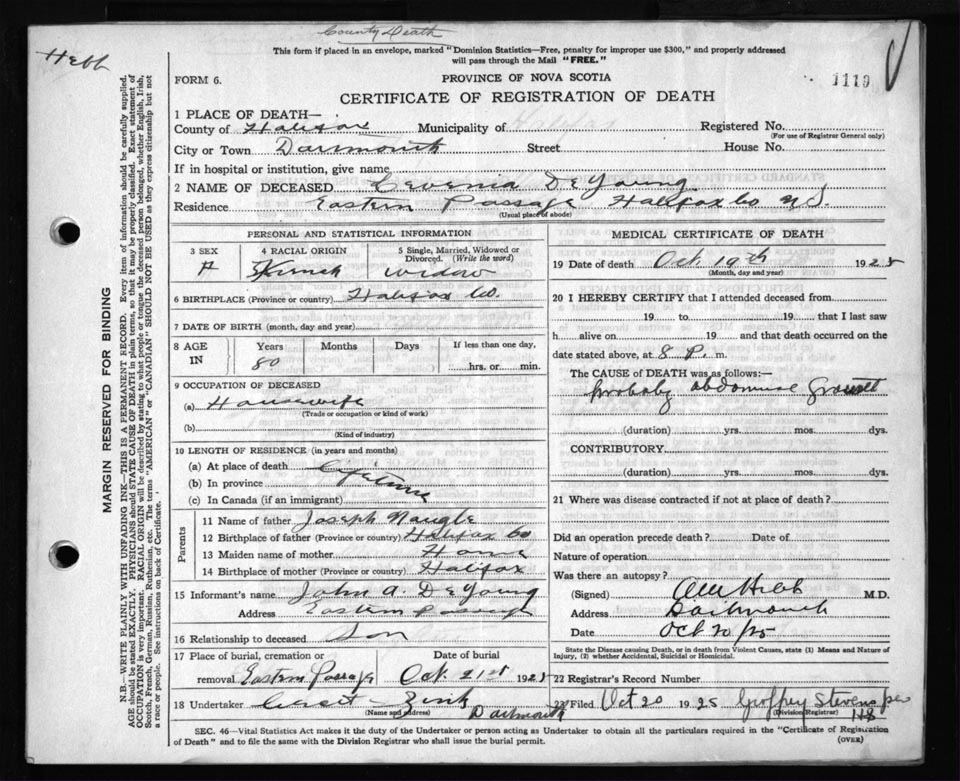 County Death
Hebb
This form if placed in an envelope, marked "Dominion Statistics—Free, penalty for improper use $300," and properly addressed
will pass through the Mail "FREE."
FORM 6.
PROVINCE OF NOVA SCOTIA
1119
CERTIFICATE OF REGISTRATION OF DEATH
1 PLACE OF DEATH—
County of Halifax Municipality of Halifax Registered No.
(For use of Registrar General only)
City or Town Dartmouth Street House No.
If in hospital or institution, give name
2 NAME OF DECEASED Cevenia DeYoung
Residence Eastern Passage Halifax Co N.S.
(Usual place of abode)
PERSONAL AND STATISTICAL INFORMATION
3 SEX 4 RACIAL ORIGIN 5 Single, Married, Widowed or
Divorced. (Write the word)
F French Widow
6 BIRTHPLACE (Province or country) Halifax Co.
7 DATE OF BIRTH (month, day and year)
8 AGE IN Years Months Days If less than one day,
80 hrs. or min.
9 OCCUPATION OF DECEASED
(a) Housewife
(Trade or occupation or kind of work)
(b)
(Kind of industry)
10 LENGTH OF RESIDENCE (in years and months)
(a) At place of death Lifetime
(b) In province
(c) In Canada (if an immigrant)
Parents
11 Name of father Joseph Naugle
12 Birthplace of father (Province or country) Halifax Co
13 Maiden name of mother
14 Birthplace of mother (Province or country) Halifax
15 Informant's name John A. DeYoung
Address Eastern Passage
16 Relationship to deceased Son
17 Place of burial, cremation or Date of burial
removal Eastern Passage Oct. 21st 1925
18 Undertaker Zink
(Name and address) Dartmouth
MEDICAL CERTIFICATE OF DEATH
19 Date of death Oct 19th 1925
(Month, day and year)
20 I HEREBY CERTIFY that I attended deceased from
19 to 19 that I last saw
h alive on 19 and that death occurred on the
date stated above, at 8 P. m.
The CAUSE OF DEATH was as follows:
Probably abdominal growth
(duration) yrs. mos. dys.
CONTRIBUTORY
(duration) yrs. mos. dys.
21 Where was disease contracted if not at place of death?
Did an operation precede death? Date of
Nature of operation
Was there an autopsy?
(Signed) Hebb M.D.
Address Dartmouth
Date Oct 20/25
State the Disease causing Death, or in death from Violent Causes, state (1) Means and Nature of
Injury, (2) whether Accidental, Suicidal or Homicidal.
22 Registrar's Record Number
23 Filed Oct 20 1925 Geoffrey Stevens
(Division Registrar)
118
SEC. 46—Vital Statistics Act makes it the duty of the Undertaker or person acting as Undertaker to obtain all the particulars required in the "Certificate of Registration
of Death" and to file the same with the Division Registrar who shall issue the burial permit. (OVER)
MARGIN RESERVED FOR BINDING
N.B.—WRITE PLAINLY WITH UNFADING INK—THIS IS A PERMANENT RECORD. Every item of information should be carefully supplied.
AGE should be stated EXACTLY. PHYSICIANS should STATE CAUSE OF DEATH in plain terms, so that it may be properly classified. Exact statement of
OCCUPATION is very important. RACIAL ORIGIN will be described by stating to what people or tongue the deceased person belonged, whether English, Irish,
Scotch, French, German, Russian, Ruthenian, etc. The terms "AMERICAN" or "CANADIAN" SHOULD NOT BE USED as they express citizenship but not
a race or people. See instructions on back of Certificate.